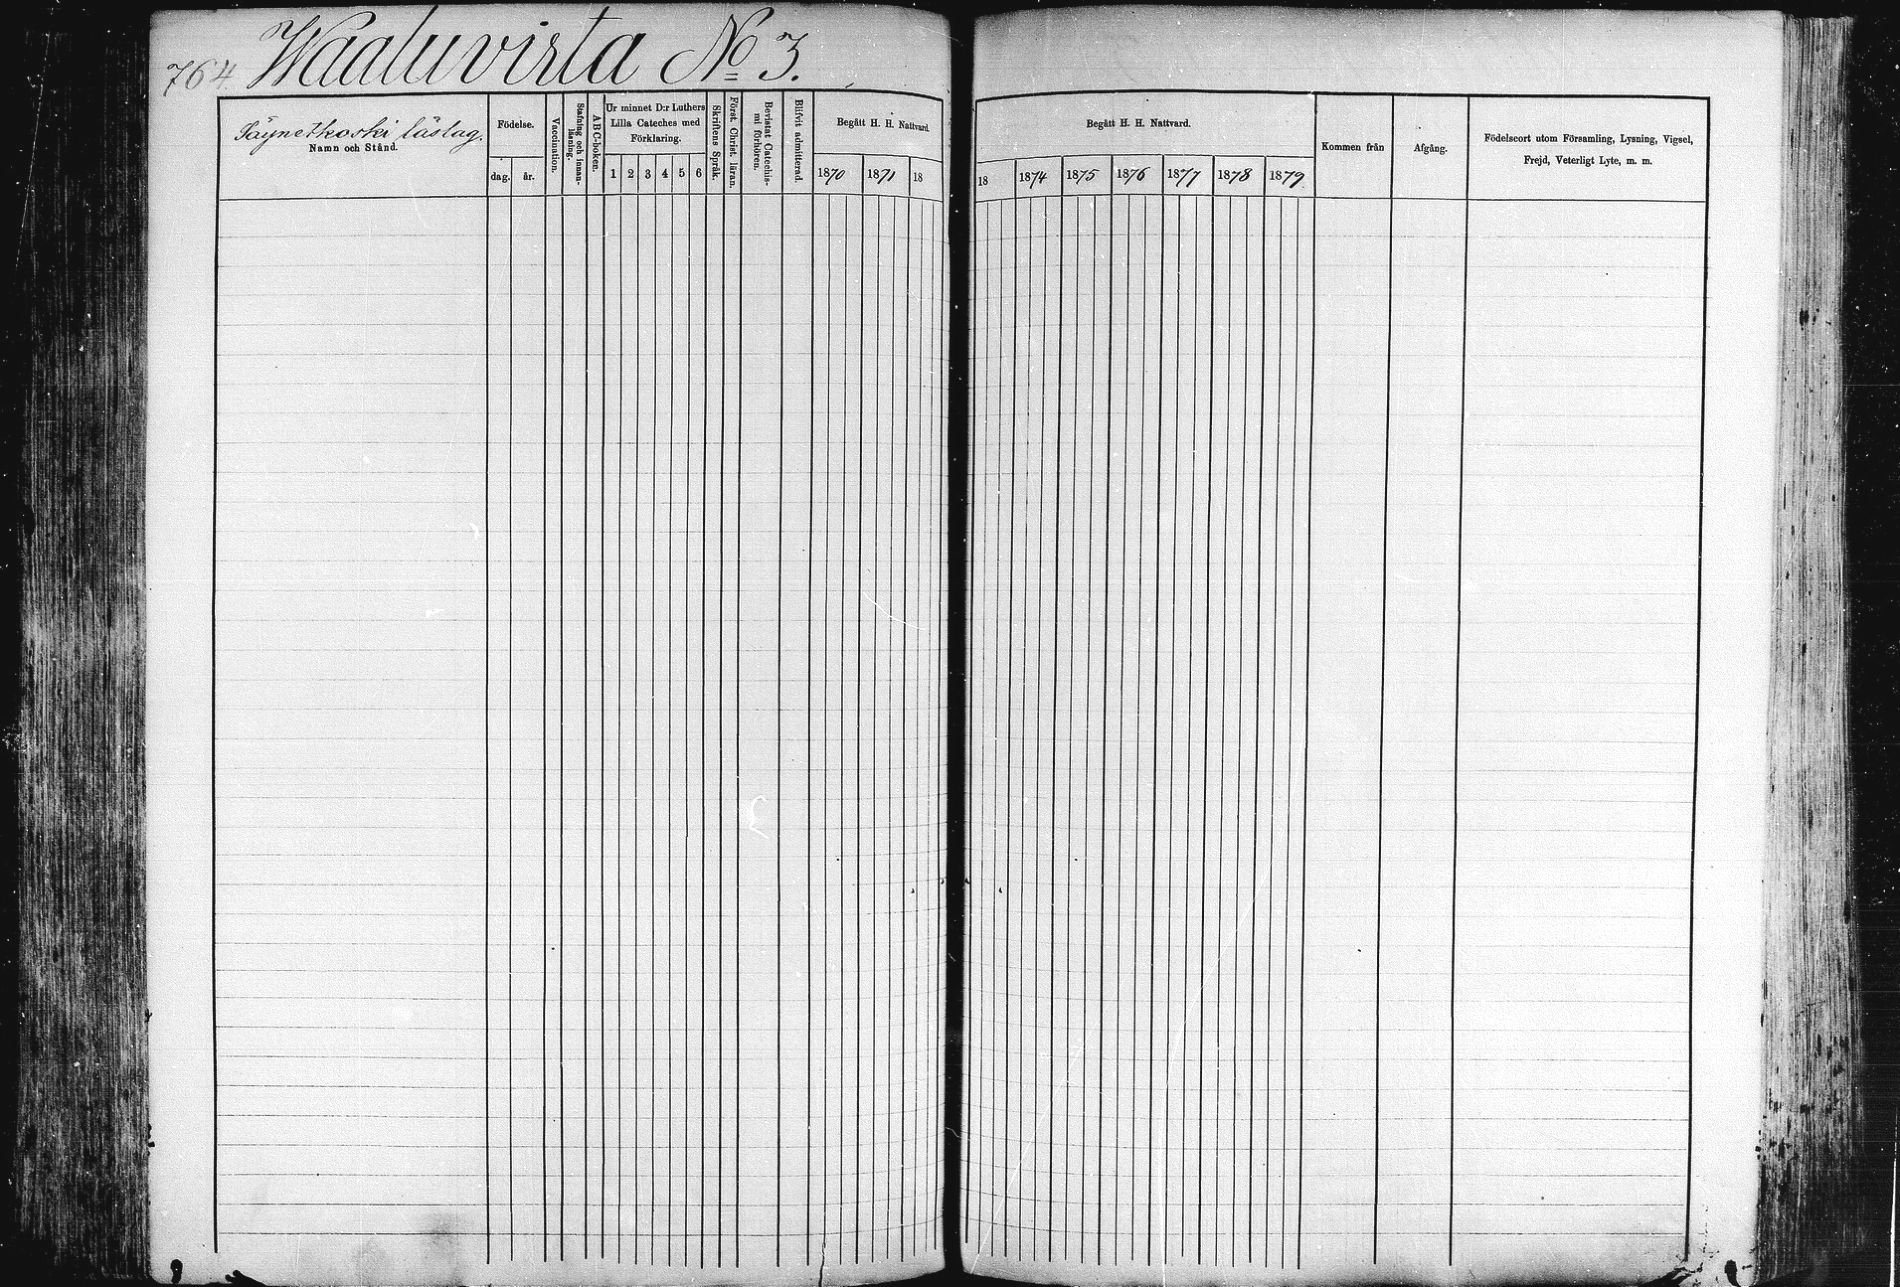 764. Waaluvirta No 3.
Säynetkoski läslag.
Namn och Stånd.
Födelse.
dag. år.
Vaccination.
Stafning och innan-
läsning.
ABC-boken.
Ur minnet D:r Luthers
Lilla Cateches med
Förklaring.
1 2 3 4 5 6
Skriftens Språk.
Först. Christ. läran.
Bevistat Catechis-
mi förhören.
Blifvit admitterad.
Begått H. H. Nattvard.
1870 1871 18
Begått H. H. Nattvard.
18 1874 1875 1876 1877 1878 1879
Kommen från
Afgång.
Födelseort utom Församling, Lysning, Vigsel,
Frejd, Veterligt Lyte, m. m.